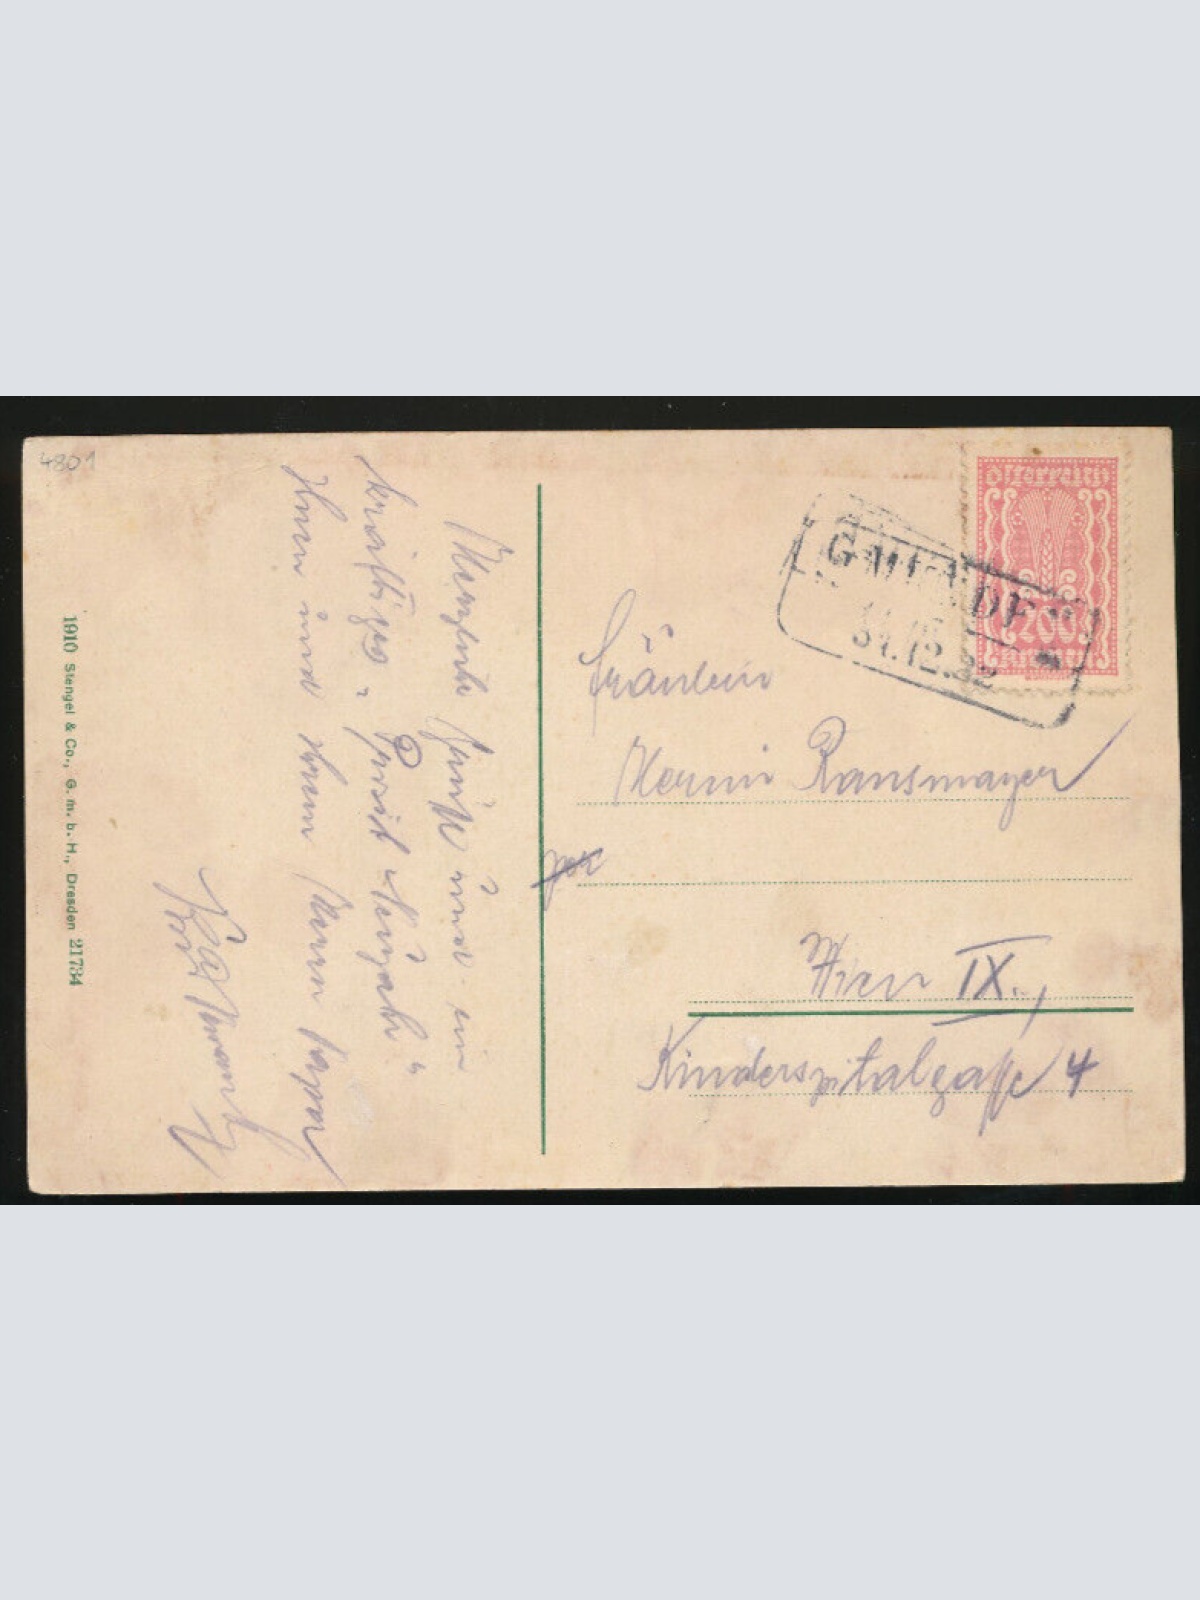 4801
Österreich
200
Kronen
31.12.22
Herzliche Grüße und ein
kräftiges „Prosit Neujahr"
Ihnen und Ihrem Herrn Papa
Fräulein
Hermi Ransmayer
Wien IX.,
Kinderspitalgasse 4
1910 Stengel & Co., G. m. b. H., Dresden 21734